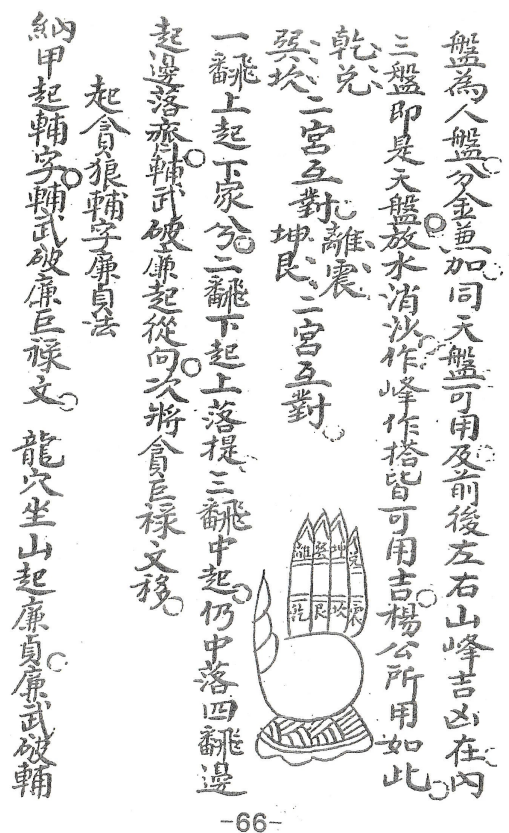 盤為人盤分金兼加同天盤可用及前後左右山峰吉凶在內
三盤即是天盤放水消沙作峰作塔皆可用吉楊公所用如此
乾兌
巽坎
二宮互對
離震
坤艮
二宮互對
一翻上起下家分二翻下起上落提三翻中起仍中落四翻邊
起邊落齊輔武破廉起從向次將貪巨祿文移
起貪狼輔字廉貞法
納甲起輔字輔武破廉巨祿文
龍穴坐山起廉貞廉武破輔
離巽坤兌
乾艮坎震
-66-